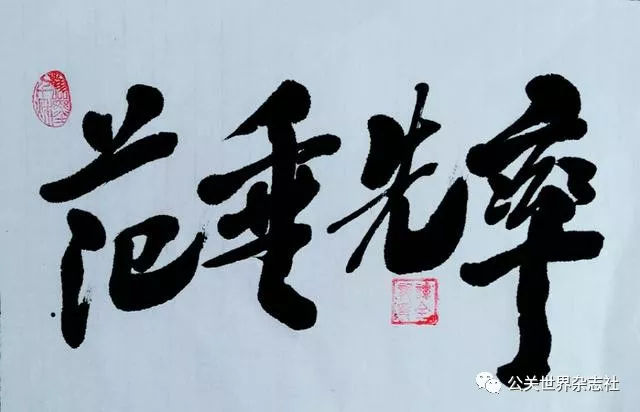 率先垂范
公关世界杂志社